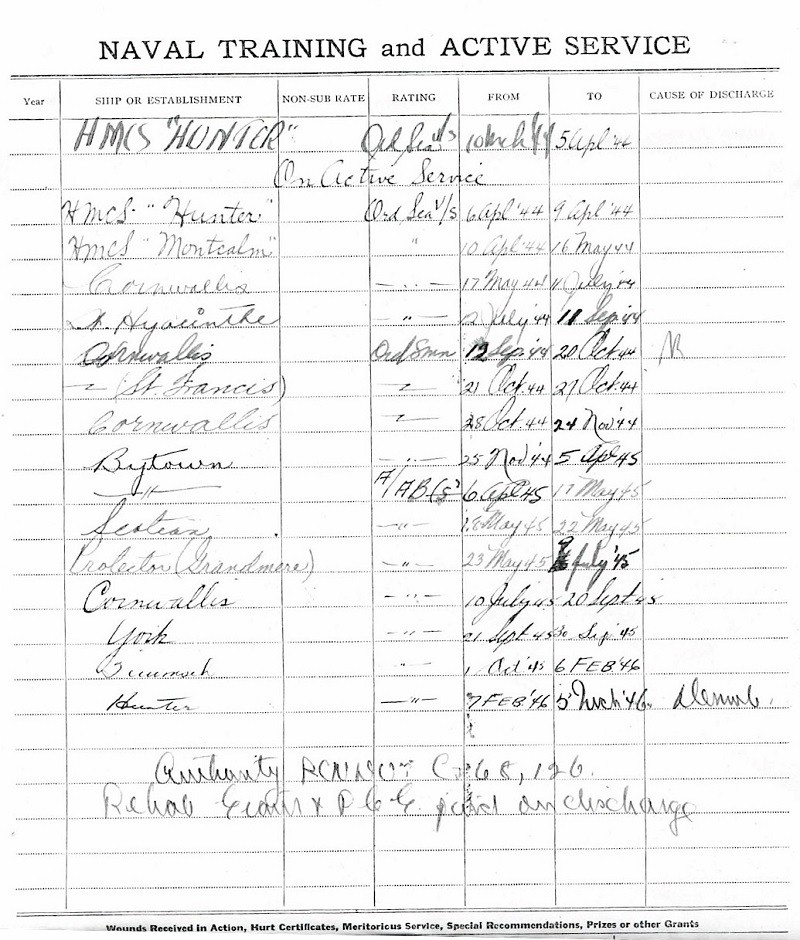 NAVAL TRAINING and ACTIVE SERVICE
Year SHIP OR ESTABLISHMENT NON-SUB RATE RATING FROM TO CAUSE OF DISCHARGE
HMCS "HUNTER" Ord Sea V/S 10 Mch 44 5 Apl '44
On Active Service
HMCS "Hunter" Ord Sea V/S 6 Apl '44 9 Apl '44
HMCS "Montcalm" " 10 Apl '44 16 May 44
Cornwallis " 17 May 44 July 44
St. Hyacinthe " 2 July '44 11 Sep '44
Cornwallis Ord Smn 12 Sep '44 20 Oct 44
" (St. Francis) " 21 Oct 44 27 Oct 44
Cornwallis " 28 Oct 44 24 Nov '44
Bytown " 25 Nov '44 5 Apl '45
" A/AB (S) 6 Apl 45 17 May 45
Scotian " 18 May 45 22 May 45
Protector (Grandmere) " 23 May 45 July '45
Cornwallis " 10 July 45 20 Sept 45
York " 21 Sept 45 30 Sep '45
Tecumseh " 1 Oct '45 6 FEB '46
Hunter " 7 FEB '46 5 Mch '46 Demob.
Authority 68,126.
Rehab Grant & paid on discharge
Wounds Received in Action, Hurt Certificates, Meritorious Service, Special Recommendations, Prizes or other Grants